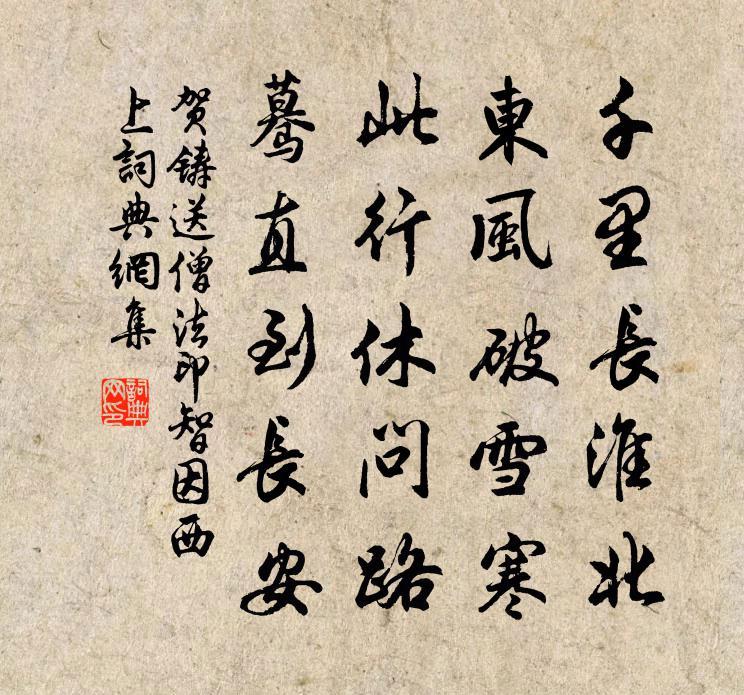 千里長淮北
東風破雪寒
此行休問路
驀直到長安
賀鑄送僧法印智因西
上詞典網集
詞典网印